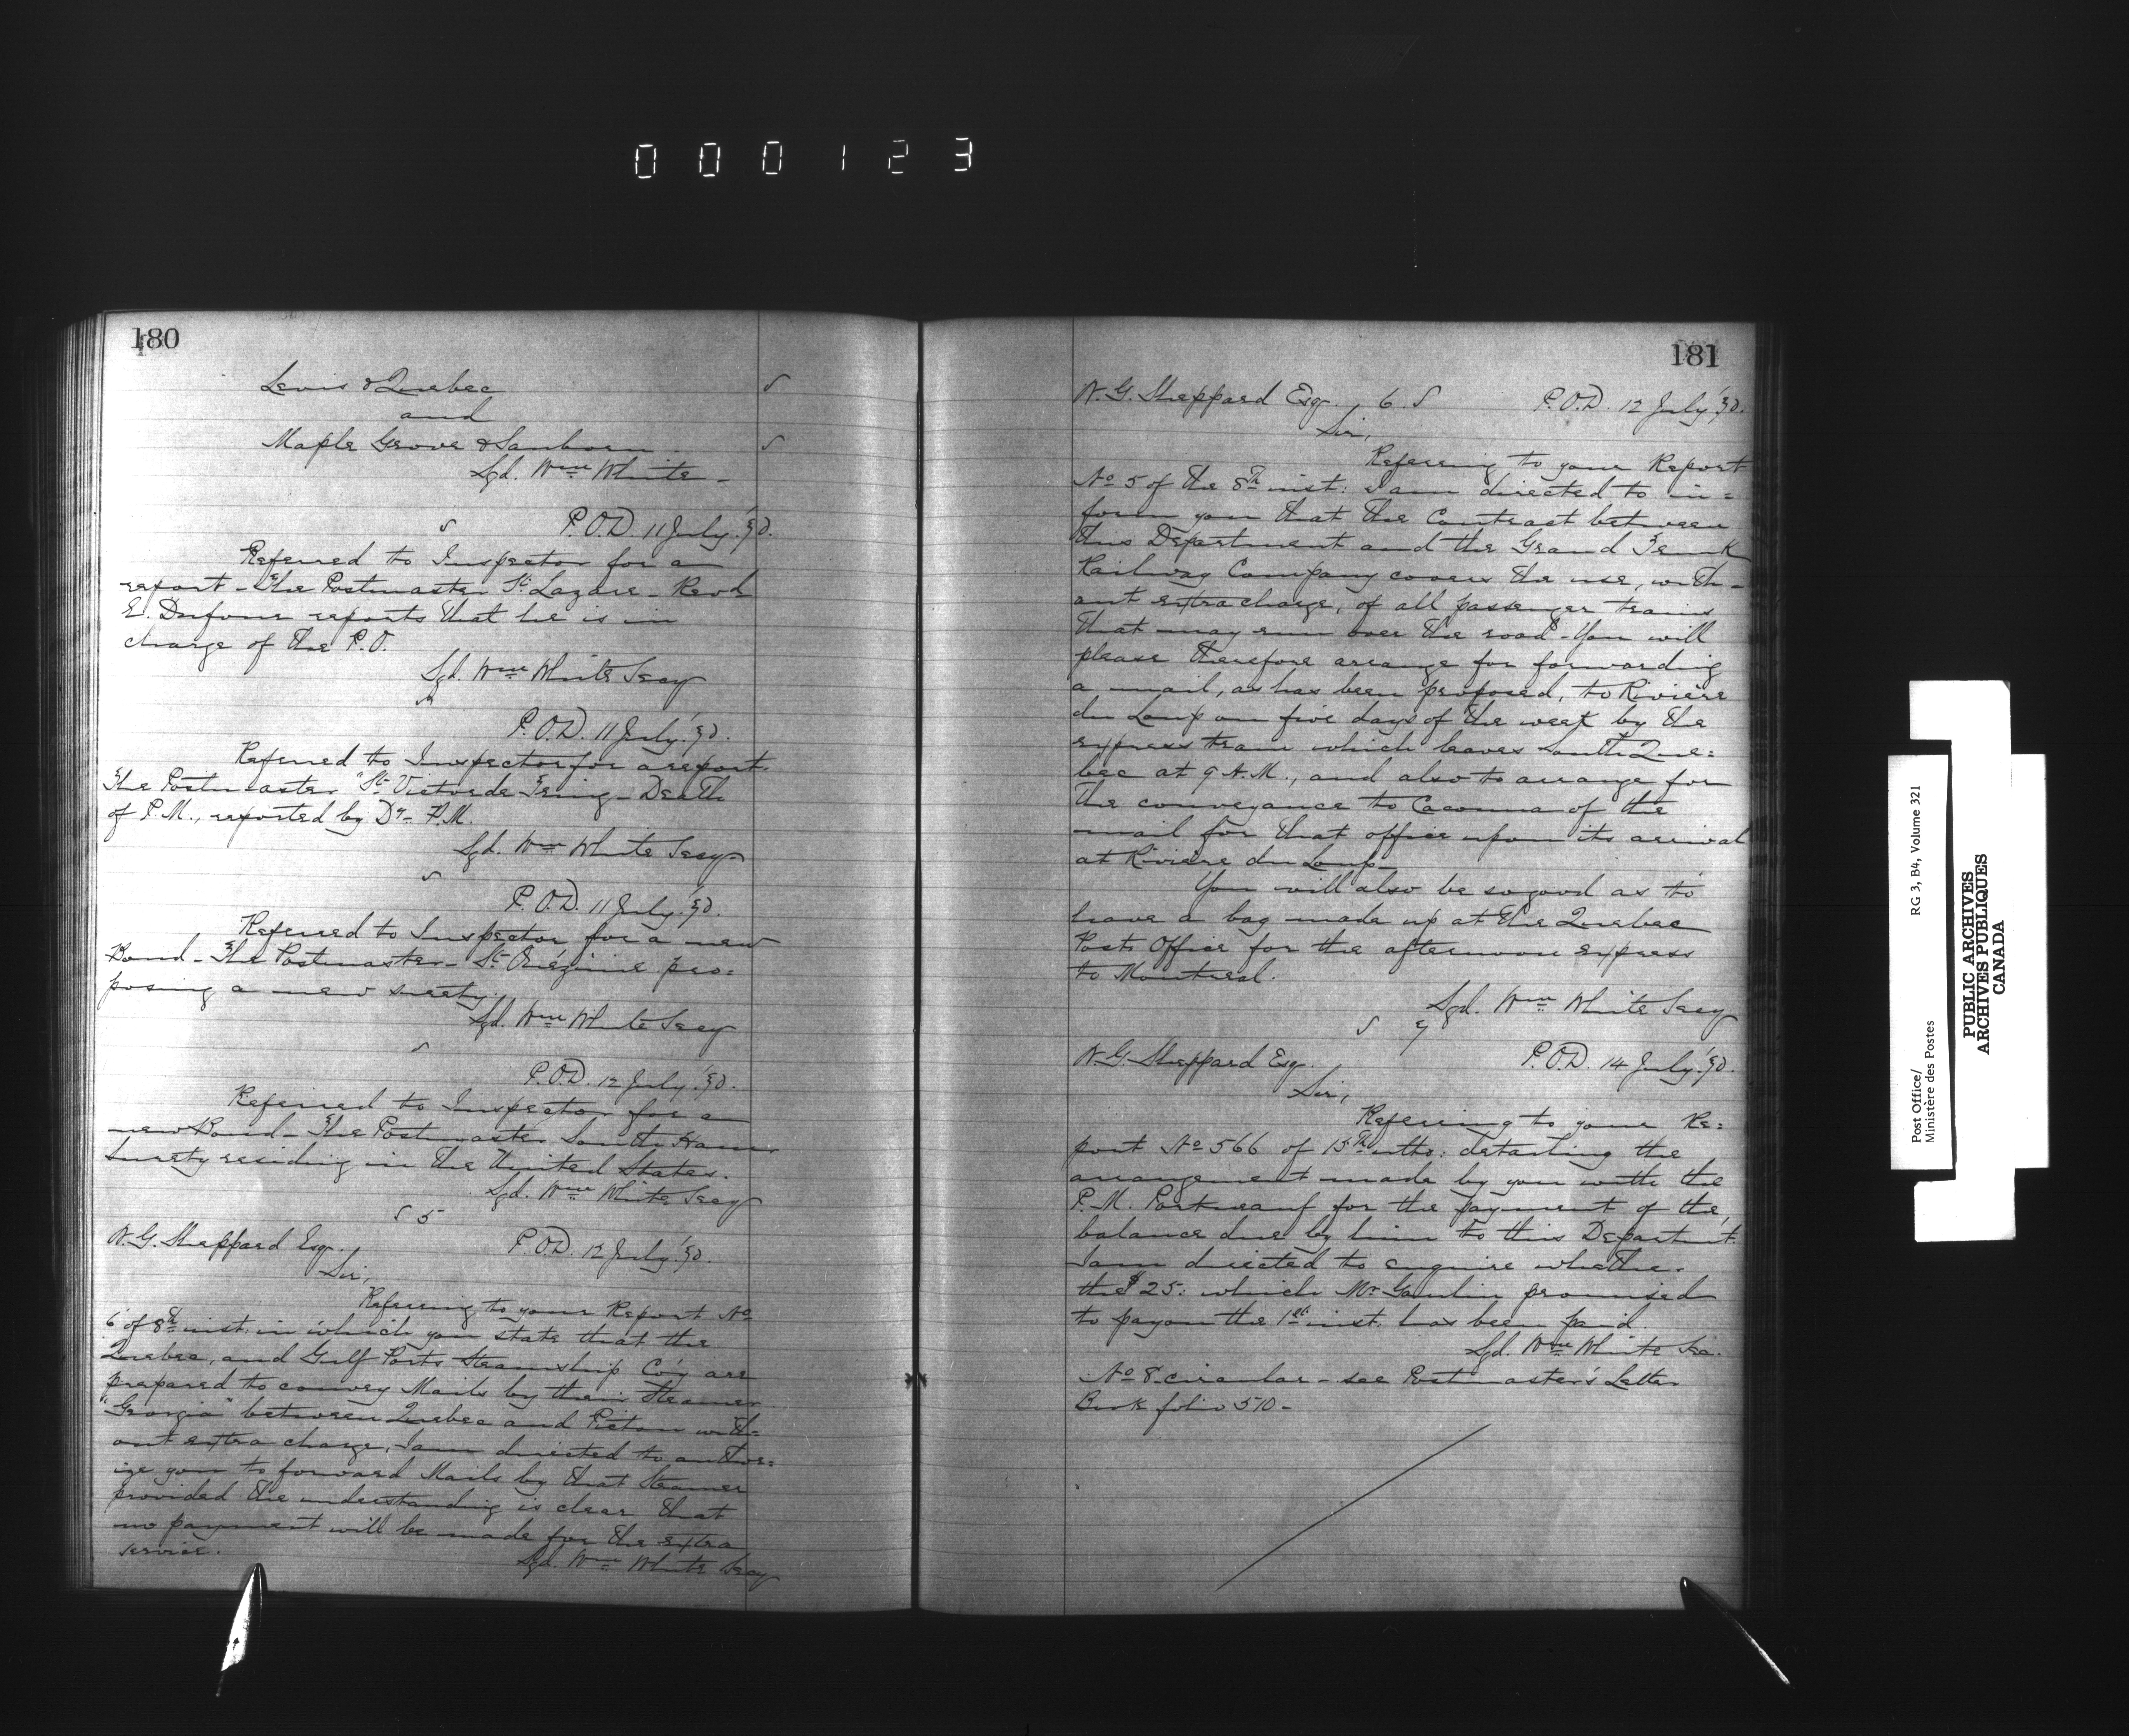 000123
180
Levis & Quebec
and
Maple Grove & Sanborn
Sgd. Wm White -
P.O.D. 11 July '90.
Referred to Inspector for a
report - The Postmaster St Lazare - Revd
E. Dufour reports that he is in
charge of the P.O.
Sgd. Wm White Secy
P.O.D. 11 July '90.
Referred to Inspector for a report.
The Postmaster "St Victor de Tring - Death
of P.M., reported by Dy - P.M.
Sgd. Wm White Secy
P.O.D. 11 July '90.
Referred to Inspector for a new
Bond - The Postmaster - St Onézime pro=
posing a new surety.
Sgd. Wm White Secy
P.O.D. 12 July '90.
Referred to Inspector for a
new Bond - The Postmaster South Ham
Surety residing in the United States.
Sgd. Wm White Secy
5
W. G. Sheppard Esq. P.O.D. 12 July '90.
Sir,
Referring to your Report No
6 of 8th inst: in which you state that the
Quebec, and Gulf Ports Steamship Co'y are
prepared to convey Mails by their Steamer
"Georgia" between Quebec and Pictou with=
out extra charge, I am directed to author=
ize you to forward Mails by that Steamer
provided the understanding is clear that
no payment will be made for the extra
service.
Sgd. Wm White Secy
181
W. G. Sheppard Esqr. 6. P.O.D. 12 July '90.
Sir,
Referring to your Report
No 5 of the 8th inst: I am directed to in=
form you that the Contract between
this Department and the Grand Trunk
Railway Company covers the use, with-
out extra charge, of all passenger trains
that may run over the road - You will
please therefore arrange for forwarding
a mail, as has been proposed, to Rivière
du Loup on five days of the week by the
express train which leaves South Que=
bec at 9 A.M., and also to arrange for
the conveyance to Cacouna of the
mail for that office upon its arrival
at Rivière du Loup -
You will also be so good as to
have a bag made up at the Quebec
Post Office for the afternoon express
to Montreal.
Sgd. Wm White Secy
7
W. G. Sheppard Esq. P.O.D. 14 July '90.
Sir,
Referring to your Re=
port No 566 of 13th ulto: detailing the
arrangement made by you with the
P.M. Portneuf for the payment of the
balance due by him to this Departmt.
I am directed to enquire whether
the $25: which Mr Gaulin promised
to pay on the 1st inst. has been paid.
Sgd. Wm White Sec.
No 8. circular - see Postmaster's Letter
Book folio 510 -
Post Office/
Ministère des Postes
RG 3, B4, Volume 321
PUBLIC ARCHIVES
ARCHIVES PUBLIQUES
CANADA